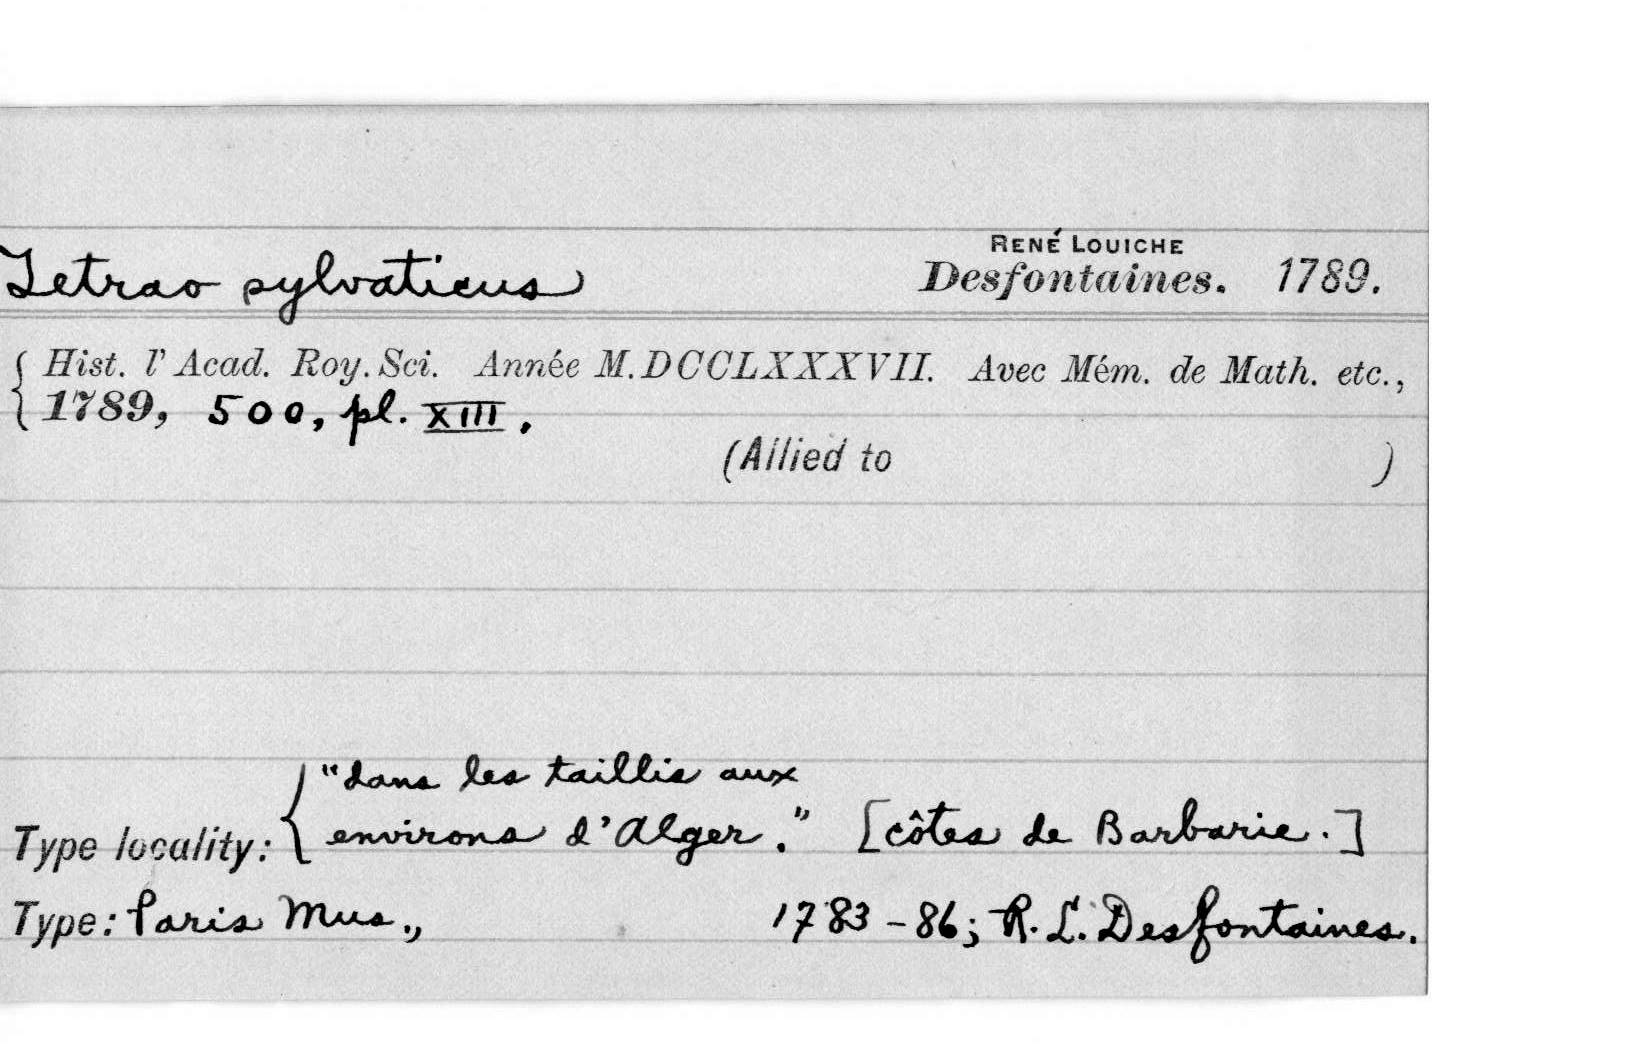 RENÉ LOUICHE
Tetrao sylvaticus Desfontaines. 1789.
Hist. l' Acad. Roy. Sci. Année M.DCCLXXXVII. Avec Mém. de Math. etc.,
1789, 500, pl. XIII.
(Allied to )
"dans les taillis aux
Type locality: environs d'Alger." [côtes de Barbarie.]
Type: Paris Mus., 1783-86; R. L. Desfontaines.